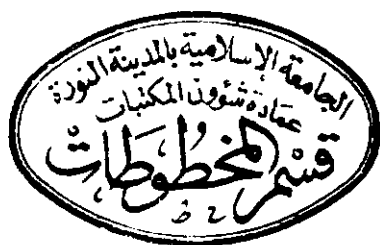 الجامعة الإسلامية بالمدينة المنورة
عمادة شؤون المكتبات
قسم المخطوطات